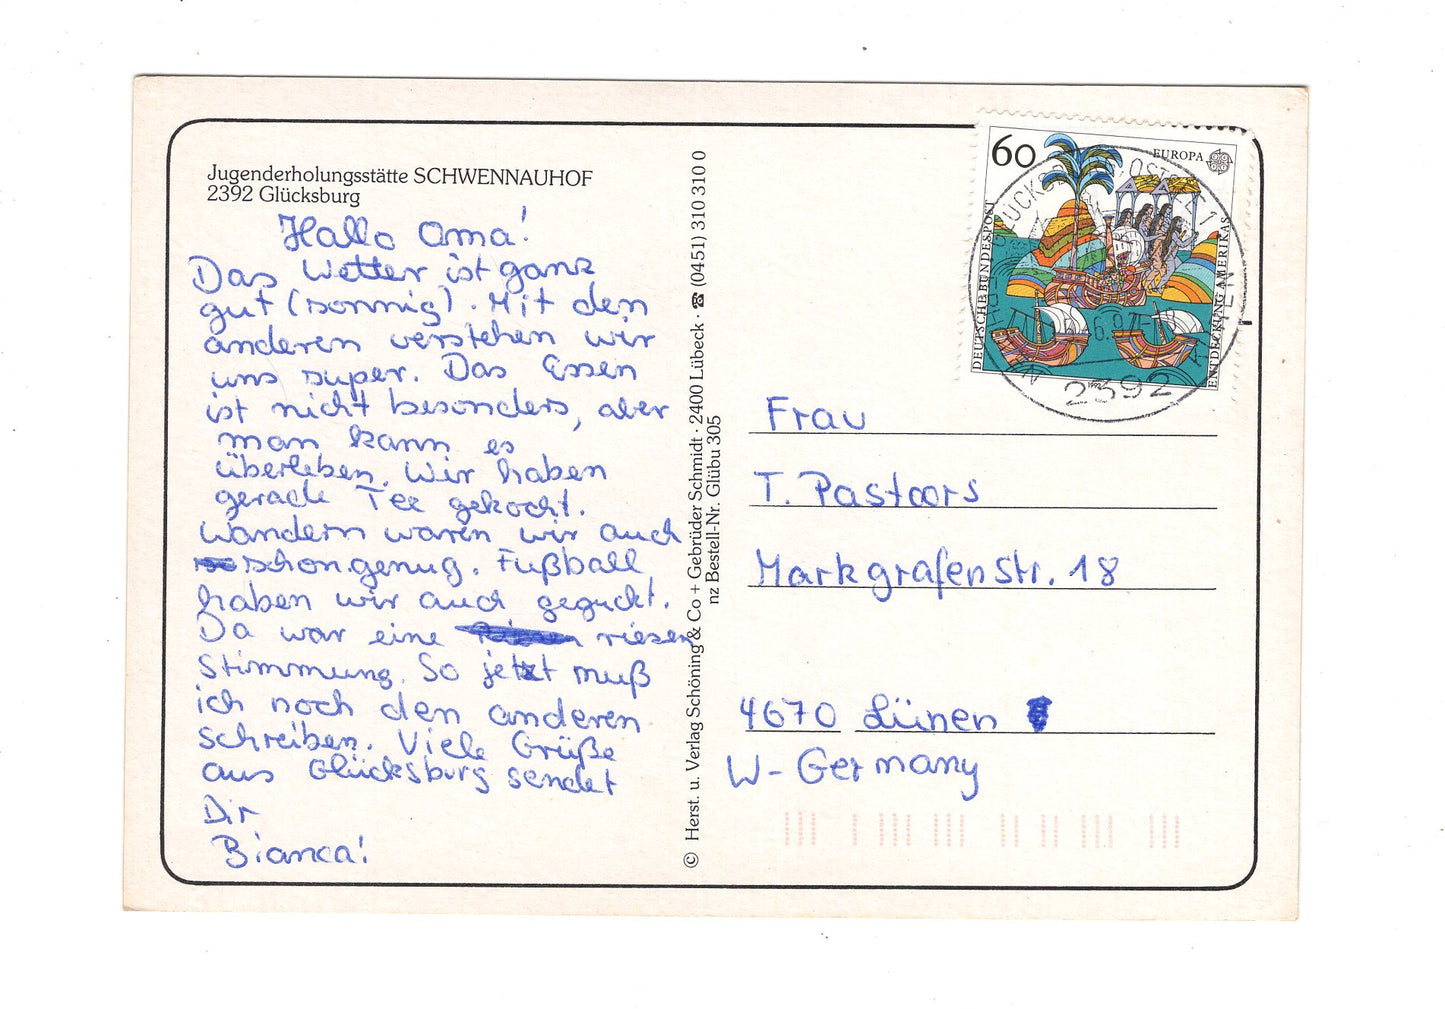 Jugenderholungsstätte SCHWENNAUHOF
2392 Glücksburg
Hallo Oma!
Das Wetter ist ganz
gut (sonnig). Mit den
anderen verstehen wir
uns super. Das Essen
ist nicht besonders, aber
man kann es
überleben. Wir haben
gerade Tee gekocht.
Wandern waren wir auch
schon genug. Fußball
haben wir auch geguckt.
Da war eine riesen
Stimmung. So jetzt muß
ich noch den anderen
schreiben. Viele Grüße
aus Glücksburg sendet
Dir
Bianca!
© Herst. u. Verlag Schöning & Co + Gebrüder Schmidt · 2400 Lübeck · ☎ (0451) 310 310 0
nz Bestell-Nr. Glübu 305
60
EUROPA
DEUTSCHE BUNDESPOST
ENTDECKUNG AMERIKAS
2392
Frau
T. Pastoors
Markgrafenstr. 18
4670 Lünen
W-Germany